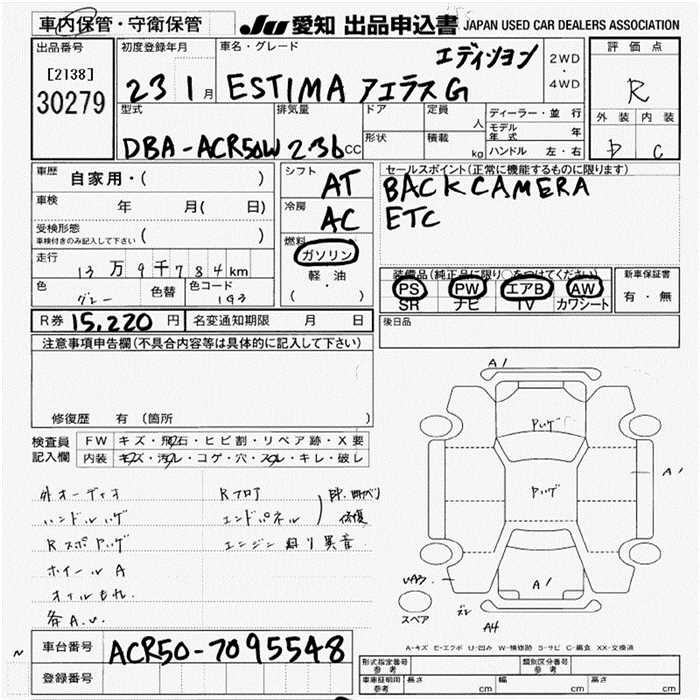 車内保管・守衛保管
JU 愛知 出品申込書 JAPAN USED CAR DEALERS ASSOCIATION
出品番号
[2138]
30279
初度登録年月
23 1月
車名・グレード
エディション
ESTIMA アエラス G
2WD
・
4WD
評価点
R
外装 内装
D C
型式
DBA-ACR50W
排気量
236 CC
ドア
形状
定員 人
積載 kg
ディーラー・並行
モデル年式 年
ハンドル 左・右
車歴 自家用・( )
車検 年 月( 日)
受検形態
車検付きのみ記入して下さい ( )
走行 13万9千784km
色 グレー 色替 色コード 1G3
シフト AT
冷房 AC
燃料
ガソリン
軽油
( ・ )
セールスポイント(正常に機能するものに限ります)
BACK CAMERA
ETC
装備品(純正品に限り○をつけてください)
PS PW エアB AW
SR ナビ TV カワシート
新車保証書
有・無
R券 15,220 円 名変通知期限 月 日
後日品
注意事項申告欄(不具合内容等は具体的に記入して下さい)
修復歴 有 (箇所 )
検査員
記入欄
FW キズ・飛石・ヒビ割・リペア跡・X要
内装 キズ・汚れ・コゲ・穴・スレ・キレ・破レ
外オーディオ
ハンドルハゲ
Rスポハゲ
ホイールA
オイルもれ
各A.U.
Rフロア
エンドパネル
修復
エンジン 異音
A1
ハゲ
ハゲ
A1
A1
UA3
スペア
A4
A-キズ E-エクボ U-凹み W-補修跡 S-サビ C-腐食 XX-交換済
車台番号 ACR50-7095548
登録番号
形式指定番号
参考
類別区分番号
参考
車庫証明用
参考
長さ cm 幅 cm 高さ cm